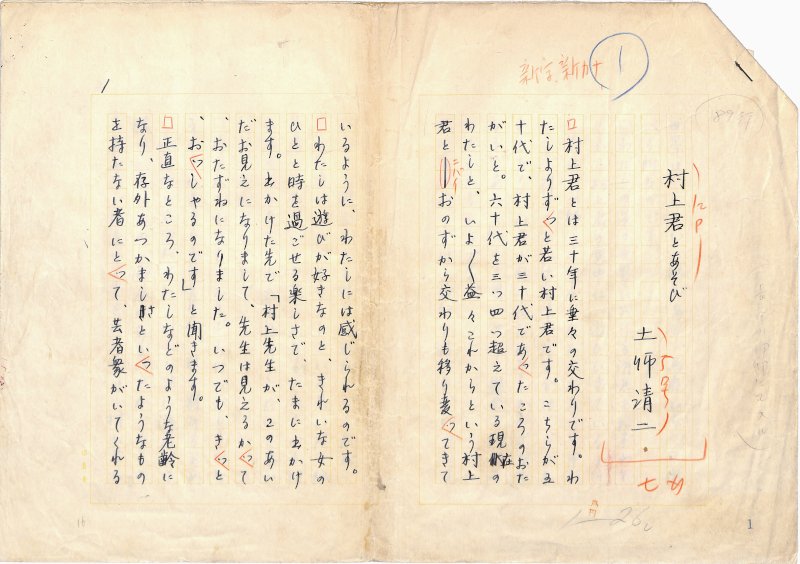 新字、新カナ
1
村上君とあそび
土師清二
五号
村上君とは三十年に垂々の交わりです。わ
たしよりずっと若い村上君です。こちらが五
十代で、村上君が三十代であったころのおた
がいと。六十代を三つ四つ超えている現在の
わたしと、いよ〱益々これからという村上
君と おのずから交わりも移り変ってきて
いるように、わたしには感じられるのです。
わたしは遊びが好きなのと、きれいな女の
ひとと時を過ごせる楽しさで、たまに出かけ
ます。出かけた先で「村上先生が、このあい
だお見えになりまして、先生は見えるかって
、おたずねになりました。いつでも、きっと
、おっしゃるのです」と聞きます。
正直なところ、わたしなどのような老齢に
なり、存外あつかましいといったようなもの
を持たない者にとって、芸者衆がいてくれる
16
1